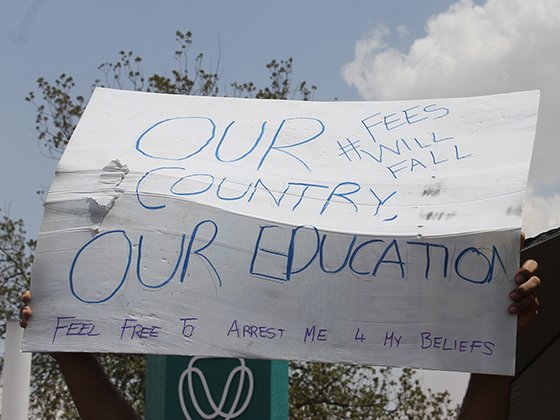 OUR
#FEES
WILL
FALL
COUNTRY,
OUR EDUCATION
FEEL FREE TO ARREST ME 4 MY BELIEFS